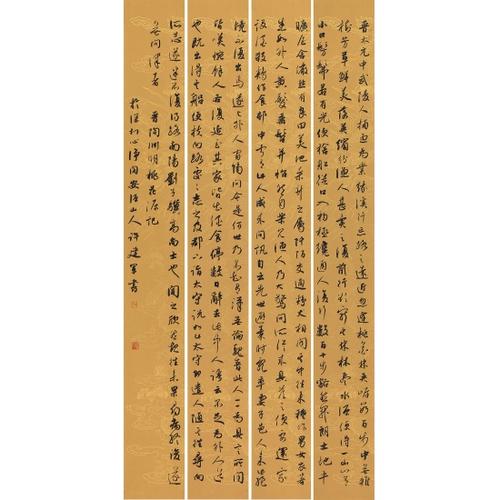 晉太元中武陵人捕魚為業緣溪行忘路之遠近忽逢桃花林夾岸數百步中無雜
樹芳草鮮美落英繽紛漁人甚異之復前行欲窮其林林盡水源便得一山山有
小口髣髴若有光便捨船從口入初極狹才通人復行數十步豁然開朗土地平
曠屋舍儼然有良田美池桑竹之屬阡陌交通雞犬相聞其中往來種作男女衣著
悉如外人黃髮垂髫并怡然自樂見漁人乃大驚問所從來具答之便要還家
設酒殺雞作食邨中聞有此人咸來問訊自云先世避秦時亂率妻子邑人來此絕
境不復出焉遂與外人間隔問今是何世乃不知有漢無論魏晉此人一一為具言所聞
皆嘆惋餘人各復延至其家皆出酒食停數日辭去此中人語云不足為外人道
也既出得其船便扶向路處處志之及郡下詣太守說如此太守即遣人隨其往尋向
所志遂迷不復得路南陽劉子驥高尚士也聞之欣然規往未果尋病終後遂
無問津者 晉陶淵明桃花源記
於深圳心淨閣 山人許建軍書